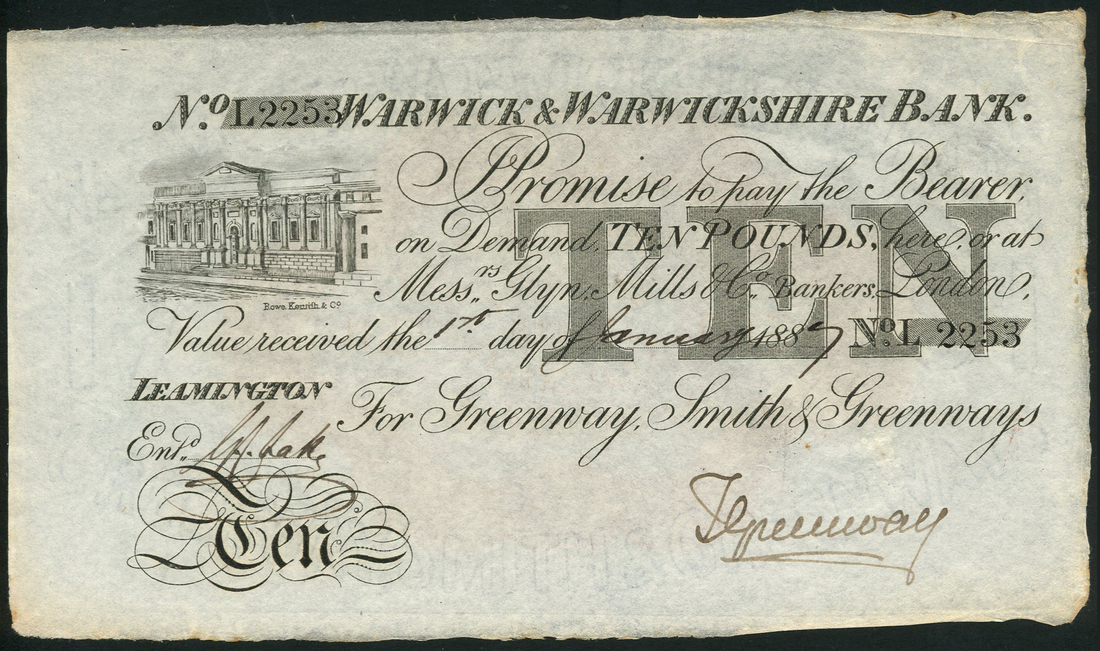 No. L2253 WARWICK & WARWICKSHIRE BANK.
I Promise to pay the Bearer,
on Demand, TEN POUNDS, here, or at
Messrs. Glyn, Mills & Co. Bankers, London,
Bowe Kenrith & Co
Value received the 1st day of January 1887 No. L 2253
TEN
LEAMINGTON
For Greenway, Smith & Greenways
Entd.
Ten
Greenway